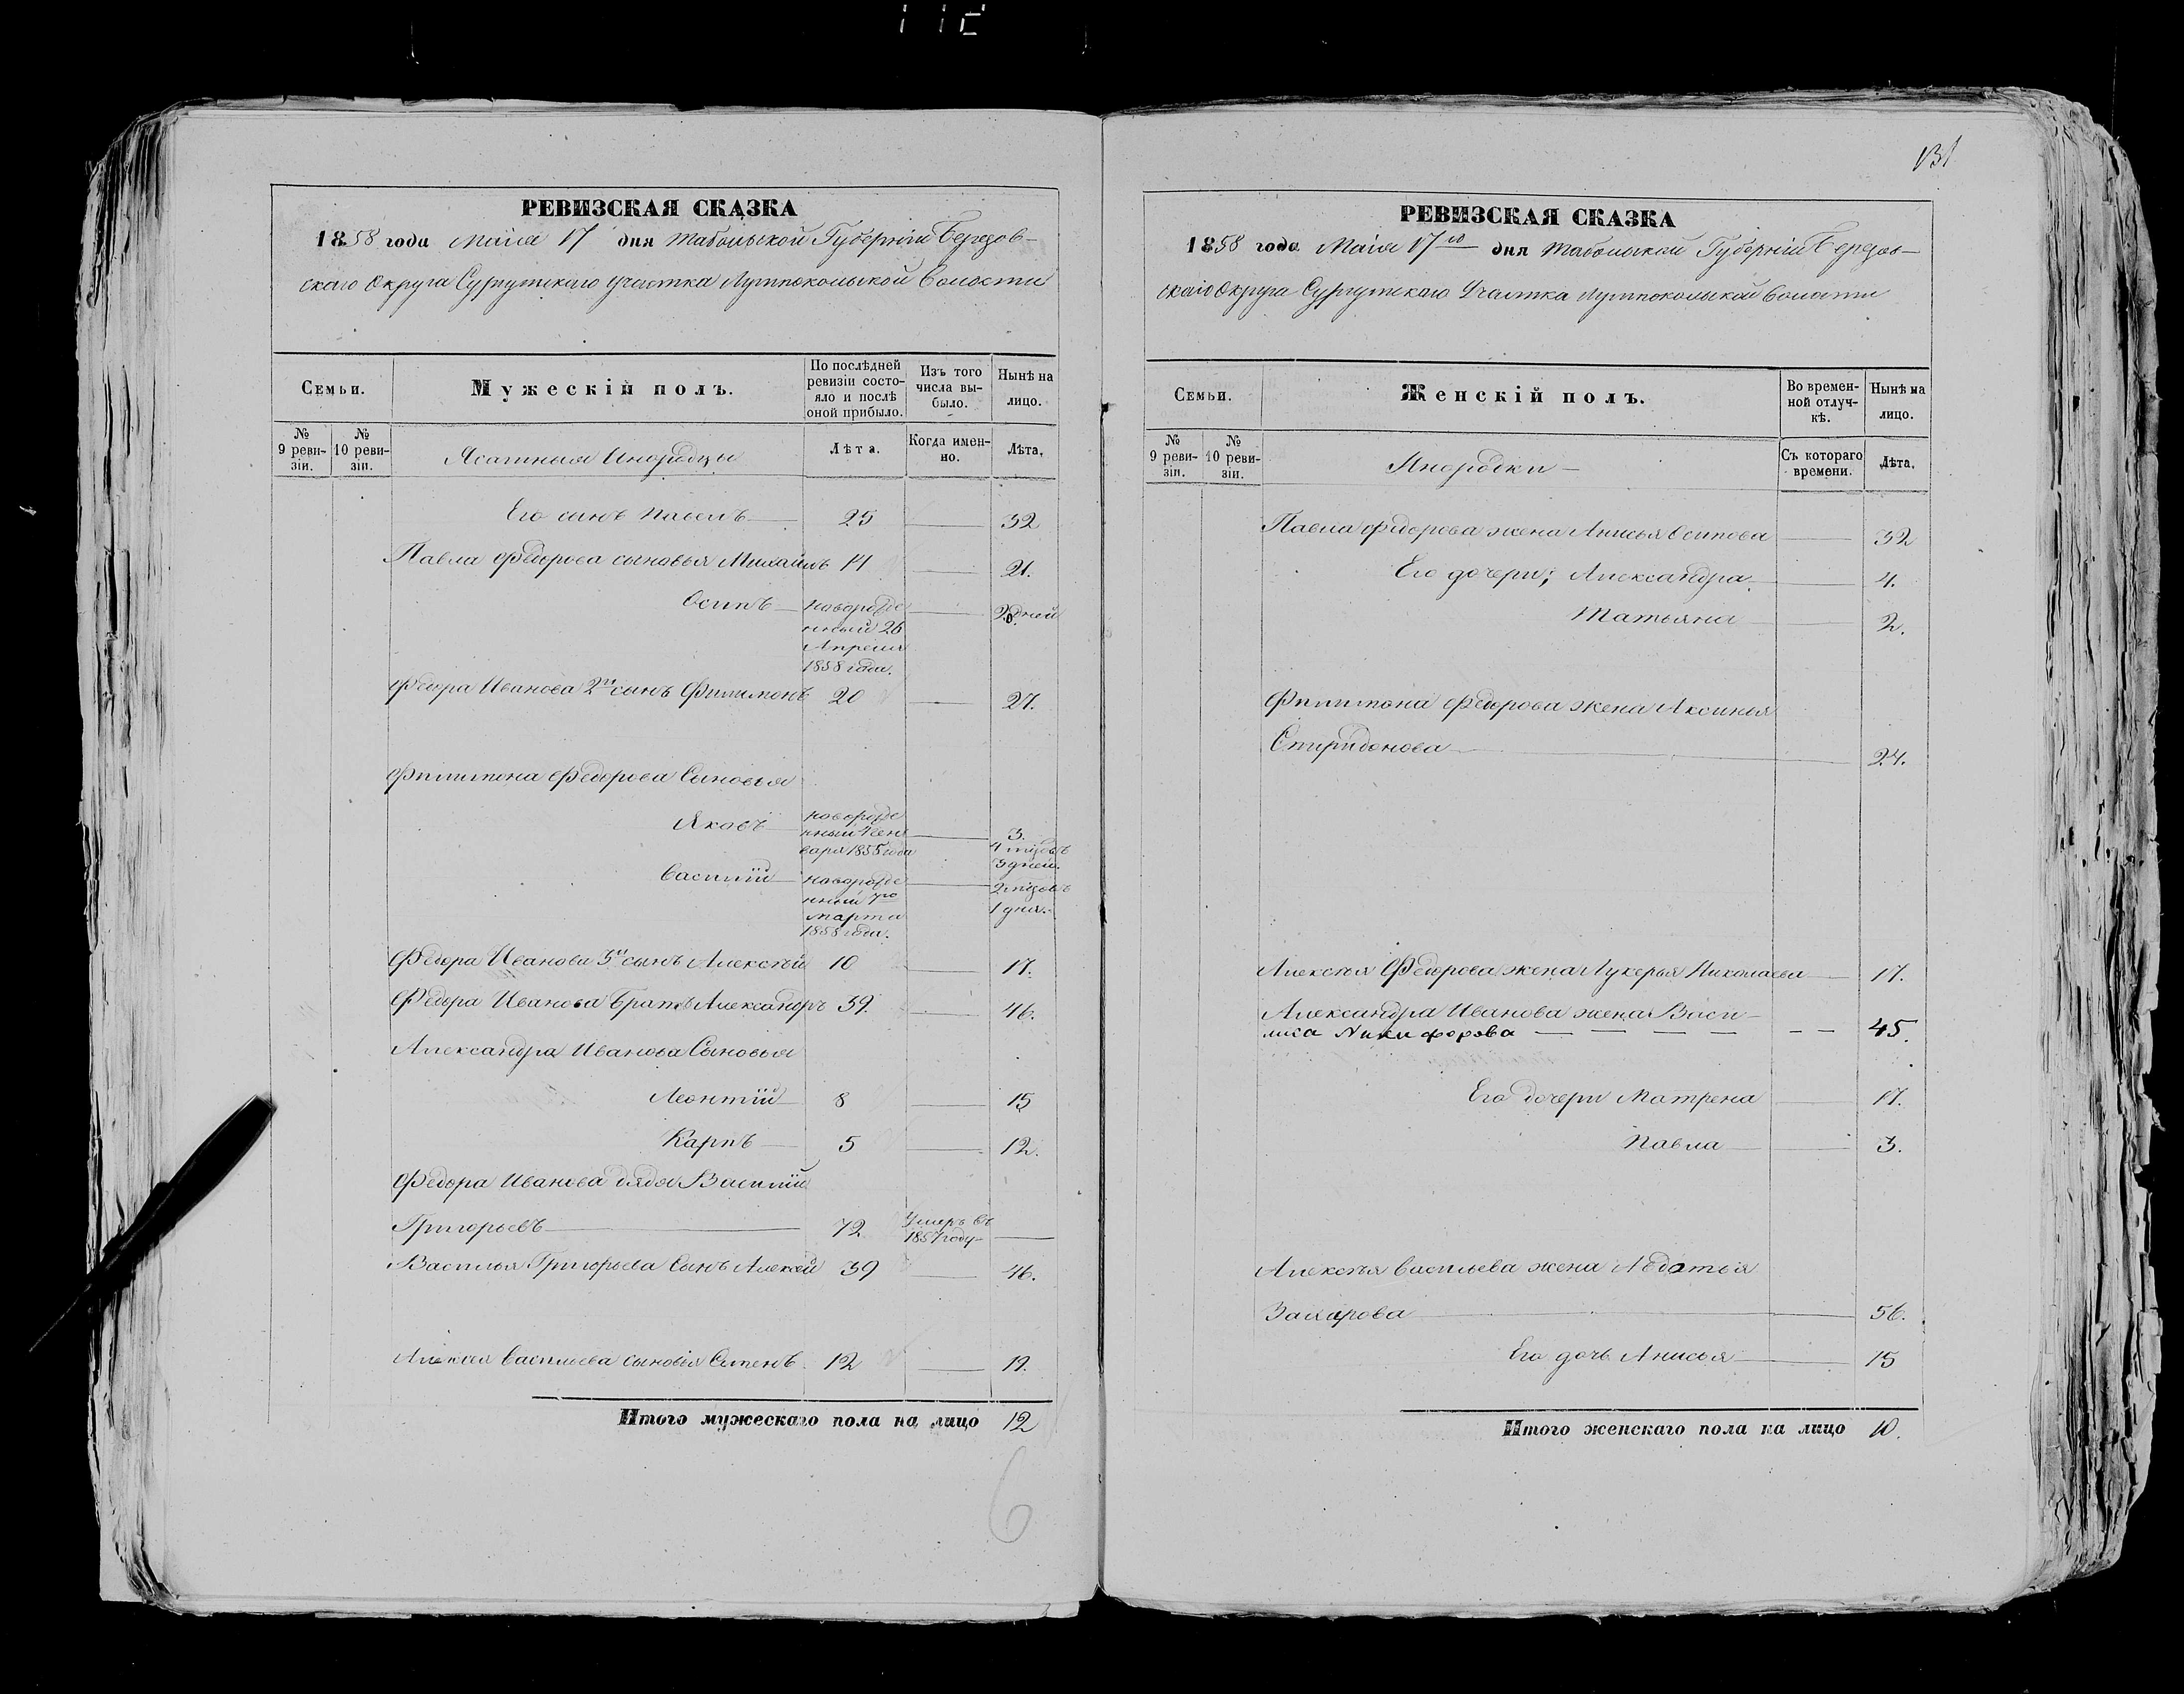 131
РЕВИЗСКАЯ СКАЗКА
1858 года Маія 17 дня Табольской Губерніи Березов-
скаго Округа Сургутскаго участка Лумпокольской Волости
Семьи.
Мужескій полъ.
По послѣдней ревизіи состо-яло и послѣ оной прибыло.
Изъ того числа вы-было.
Нынѣ на лицо.
№ 9 реви-зіи.
№ 10 реви-зіи.
Ясашныя Инородцы
Лѣта.
Когда имен-но.
Лѣта.
Его сынъ Павелъ 25 32
Павла Федорова сыновья Михаилъ 14 21.
Осипъ новорожде 20 дней
нный 26
Апреля
1858 года.
Федора Иванова 2й сынъ Филимонъ 20 27.
Филимона Федорова Сыновья
Яковъ новорожде
нный Ген 3.
варя 1855 года 4 мѣцовъ
3 дней.
Василій новорожде 2 мѣцовъ
нный 7го 1 дня.
марта
1858 года.
Федора Иванова 3й сынъ Алексѣй 10 17.
Федора Иванова Братъ Александръ 39. 46.
Александра Иванова Сыновья
Леонтій 8 15
Карпъ 5 12.
Федора Иванова дядя Василій
Григорьевъ 72 Умеръ въ
1857 году
Василья Григорьева Сынъ Алексей 39 46.
Алексея Васильева сыновья Семенъ 12 19.
Итого мужескаго пола на лицо 12
6
РЕВИЗСКАЯ СКАЗКА
1858 года Маія 17го дня Табольской Губерніи Березов-
скаго Округа Сургутскаго Участка Лумпокольской Волости
Семьи.
Женскій полъ.
Во времен-ной отлуч-кѣ.
Нынѣ на лицо.
№ 9 реви-зіи.
№ 10 реви-зіи.
Инородки
Съ котораго времени.
Лѣта.
Павла Федорова жена Анисья Осипова 32
Его дочери; Александра 4.
Татьяна 2.
Филимона Федорова жена Аксинья
Спиридонова 24.
Алексѣя Федорова жена Лукерья Николаева 17.
Александра Иванова жена Васи-
лиса Никифорова 45.
Его дочери Матрена 17.
Павла 3.
Алексѣя Васильева жена Авдотья
Захарова 56.
Его дочь Анисья 15
Итого женскаго пола на лицо 10.